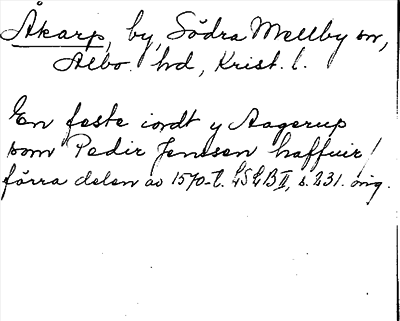 Åkarp, by, Södra Mellby sn,
Albo hd, Krist. l.
En feste iordt y Aagerup
som Pedir Jensen haffuir /
förra delen av 1570-t. LSLB II, s. 231. ing.